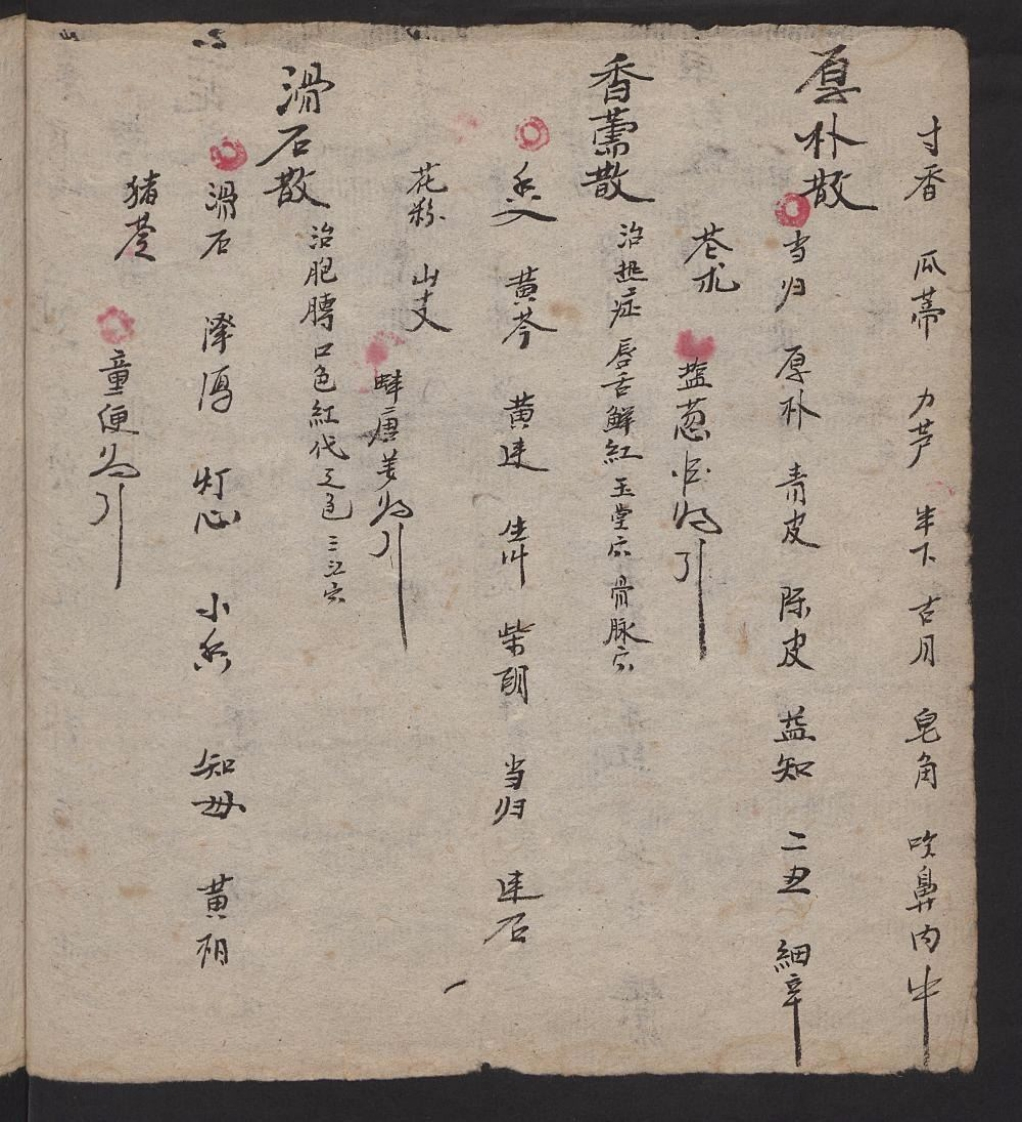 寸香 瓜蒂 力芦 半下 古月 皂角 吹鼻内中
厚朴散 当归 厚朴 青皮 陈皮 益知 二丑 細辛
苍朮 盐葱 为引
香薷散 治热症唇舌鮮紅 玉堂穴 骨脉穴
黄芩 黄連 甘草 柴胡 当归 連石
花粉 山支 为引
滑石散 治胞轉口色紅代 三江穴
滑石 澤泻 灯心 小 知母 黄柏
猪苓 童便为引